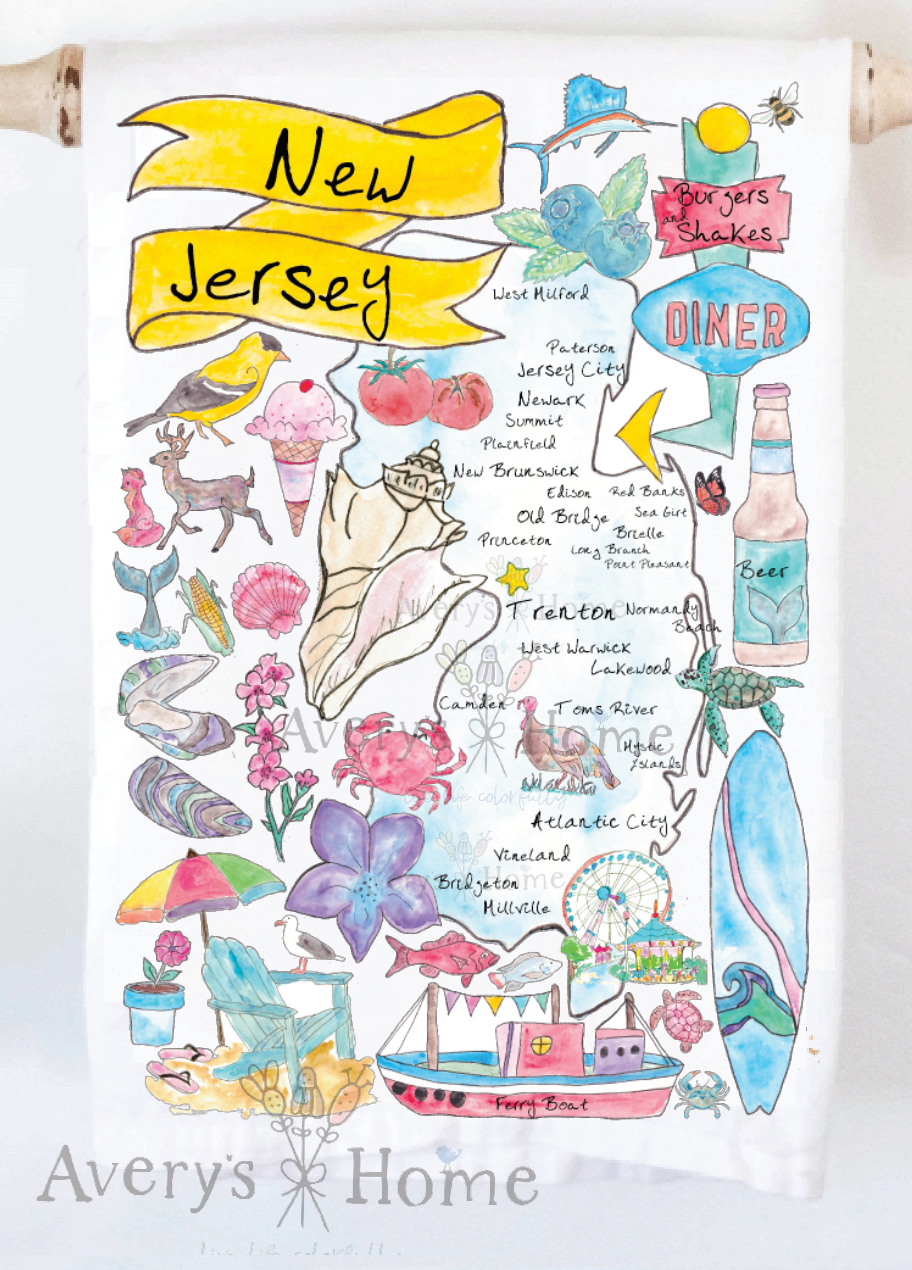 New
Jersey
Burgers
and
Shakes
DINER
West Milford
Paterson
Jersey City
Newark
Summit
Plainfield
New Brunswick
Edison
Red Banks
Old Bridge
Sea Girt
Brielle
Princeton
Long Branch
Point Pleasant
Beer
Trenton
Normandy
Beach
West Warwick
Lakewood
Camden
Toms River
Mystic
Islands
Avery's Home
Atlantic City
Vineland
Bridgeton
Millville
Ferry Boat
Avery's Home